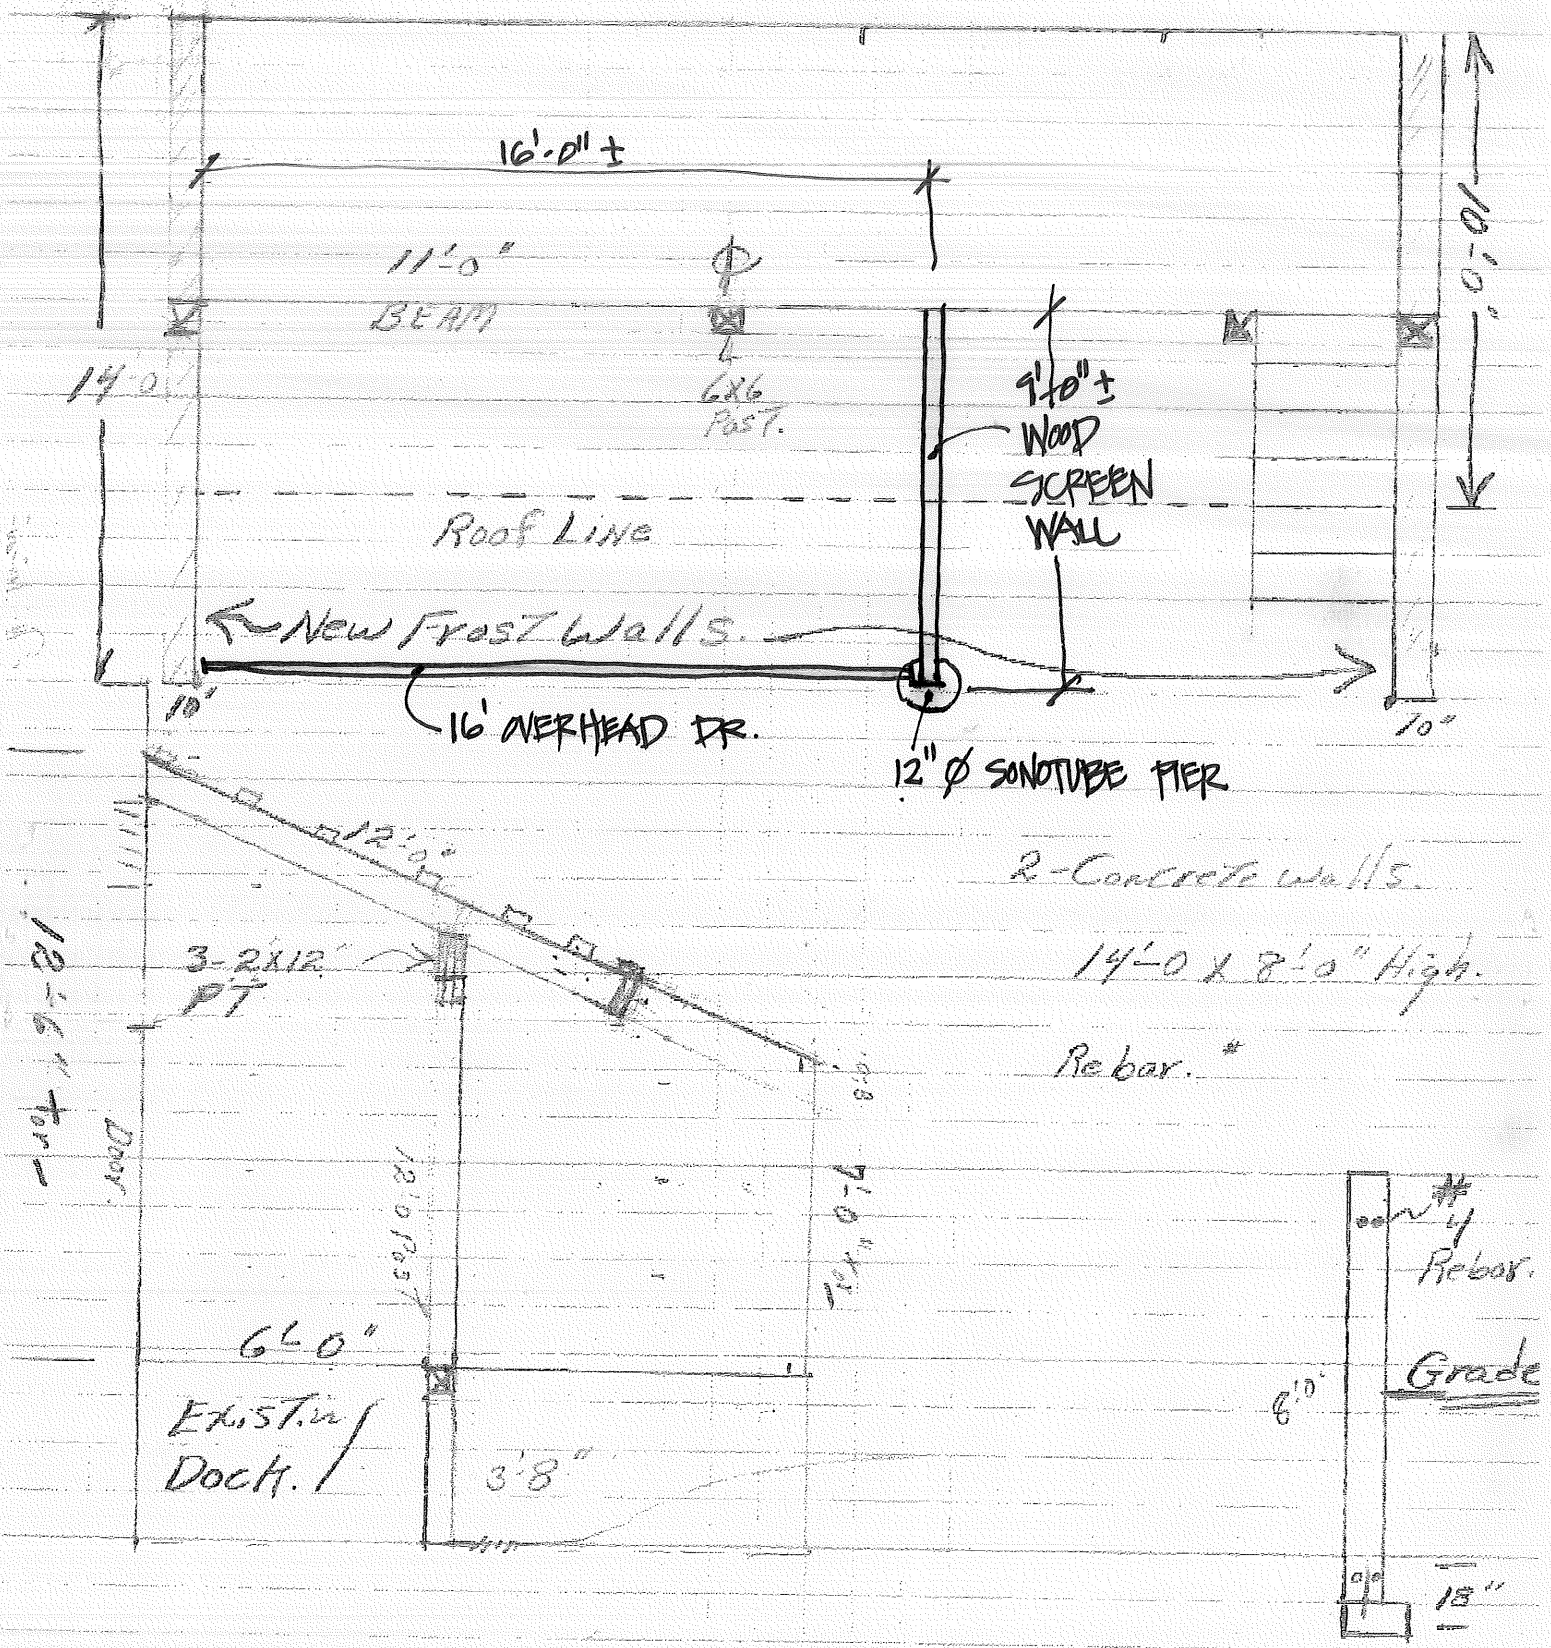 16'-0" ±
10'-0"
11'-0"
BEAM
14'-0
6x6
Post.
9'-0" ±
WOOD
SCREEN
WALL
Roof Line
New Frost Walls.
10'
16' OVERHEAD DR.
10"
12" Ø SONOTUBE PIER
12'-0"
2-Concrete walls.
3-2x12
PT
14'-0 x 8'-0" High.
Rebar. #
12'-6" + or -
Door.
12'0 Post
7'-0"
#
4
Rebar.
6'-0"
Grade
8'0"
Existin
Dock.
3'-8"
18"